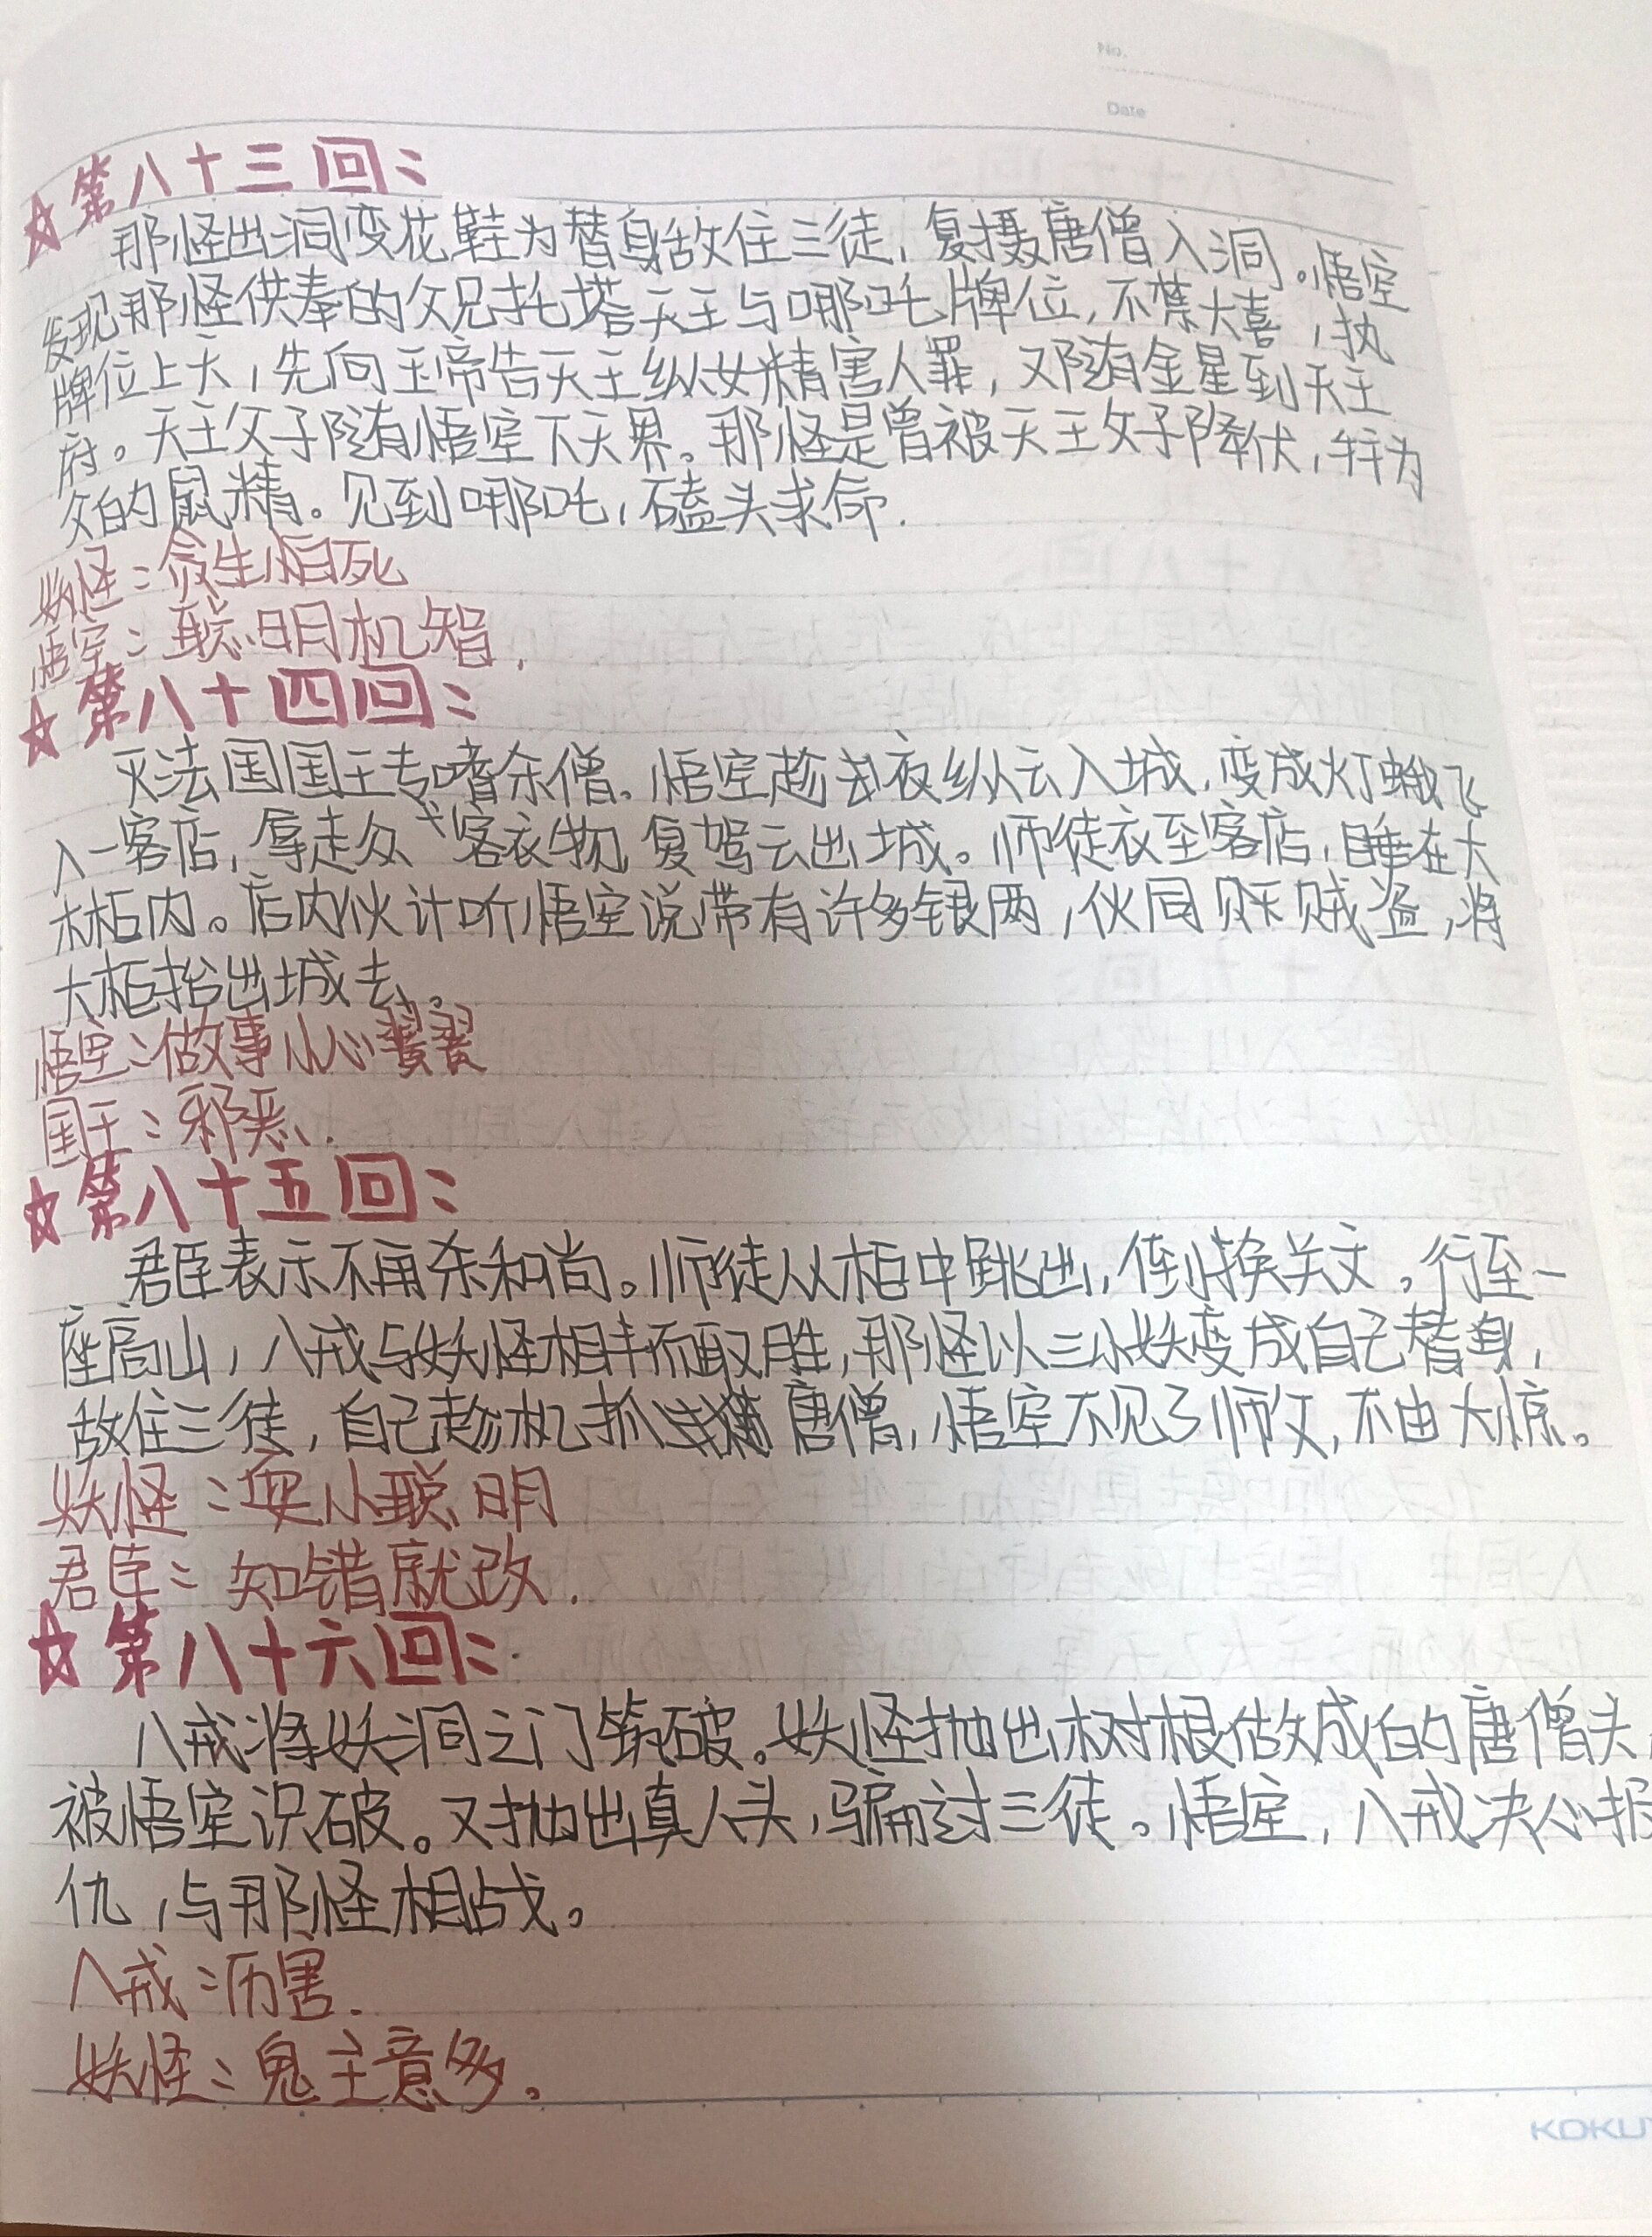 No.
Date
☆第八十三回：
那怪出洞变花鞋为替身敌住三徒，复摄唐僧入洞。悟空
发现那怪供奉的父兄托塔天王与哪吒牌位，不禁大喜，执
牌位上天，先向玉帝告天王纵女精害人罪，又随金星到天王
府。天王父子随悟空下天界。那怪是曾被天王父子降伏，拜为
父的鼠精。见到哪吒，磕头求命.
妖怪：贪生怕死
悟空：聪明机智.
☆第八十四回：
灭法国国王专嗜杀僧。悟空趁夜纵云入城，变成灯蛾飞
入一客店，拿走众客衣物，复驾云出城。师徒衣至客店，睡在大
木柜内。店内伙计听悟空说带有许多银两，伙同贼盗，将
大柜抬出城去。
悟空：做事小心翼翼
国王：邪恶.
☆第八十五回：
君臣表示不再杀和尚。师徒从柜中跳出，倒换关文。行至一
座高山，八戒与妖怪相拼而取胜，那怪以三小妖变成自己替身，
敌住三徒，自己趁机抓唐僧，悟空不见了师父，不由大惊。
妖怪：耍小聪明
君臣：知错就改.
☆第八十六回：
八戒将妖洞之门筑破。妖怪抛出树根做成的唐僧头，
被悟空识破。又抛出真人头，骗过三徒。悟空，八戒决心报
仇，与那怪相战。
八戒：厉害.
妖怪：鬼主意多。
KOKU